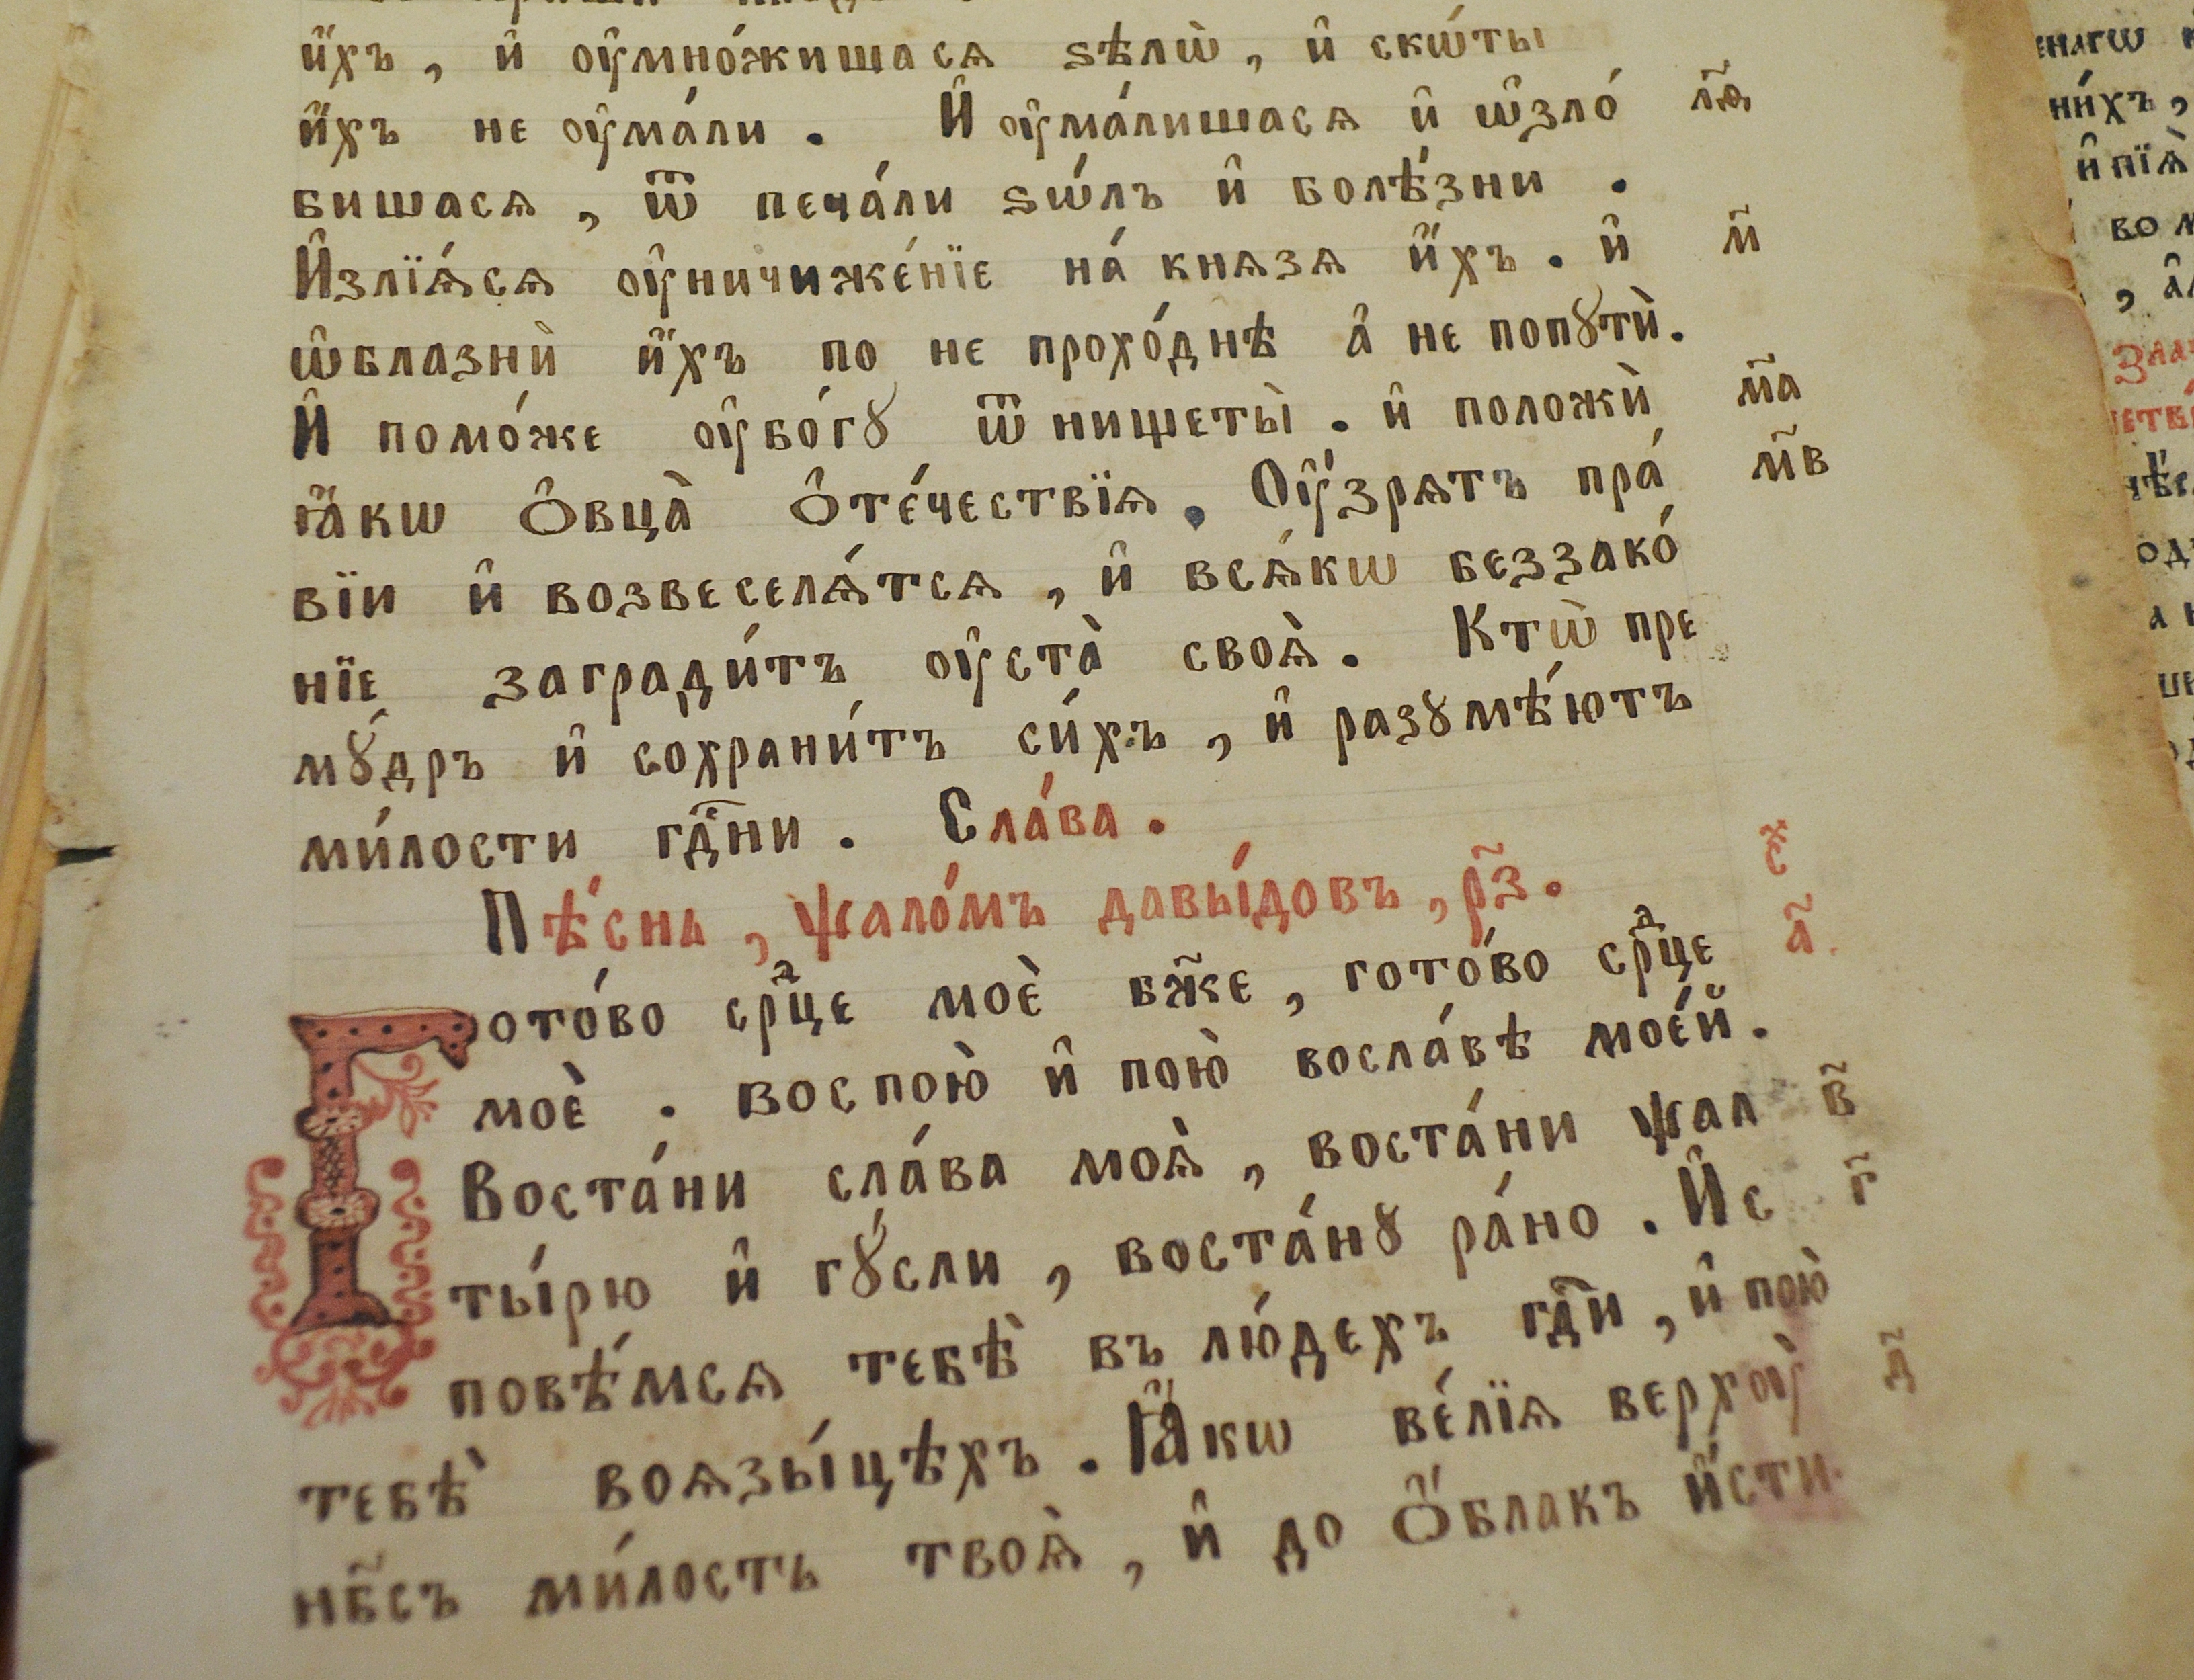 и҆́хъ, и҆ ᲂу҆мно́жишася ѕѣлѡ̀, и҆ скѡ́ты
и҆́хъ не ᲂу҆ма́ли. И҆ ᲂу҆ма́лишася и҆ ѡ҆зло́ л҃ѳ
бишася, ѿ печа́ли ѕѡ́лъ и҆ болѣ́зни.
И҆злїѧ́сѧ ᲂу҆ничиже́нїе на́ кнѧзѧ и҆́хъ. и҆ м҃
ѡ҆блазнѝ и҆́хъ по не прохо́днѣ а҆ не попꙋтѝ.
И҆ помо́же ᲂу҆бо́гꙋ ѿ нищеты̀. и҆ положѝ м҃а
ꙗ҆́кѡ ѻ҆вца̀ ѻ҆те́чествїѧ. Оу҆́зрѧтъ пра́ м҃в
вїи и҆ возвеселѧ́тсѧ, и҆ всѧ́кѡ беззако́
нїе загради́тъ ᲂу҆ста̀ своѧ̀. Ктѡ̀ пре
мꙋ́дръ и҆ сохрани́тъ си́хъ, и҆ разꙋмѣ́ютъ
ми́лости гд҃ни. Сла́ва.
Пѣ́снь, ѱало́мъ давы́довъ, р҃з.
а҃
Гото́во срⷣце моѐ бж҃е, гото́во срⷣце
моѐ. воспою̀ и҆ пою̀ восла́вѣ мое́й.
Воста́ни сла́ва моѧ̀, воста́ни ѱал в҃
ты́рю и҆ гꙋ́сли, воста́нꙋ ра́но. И҆с г҃
повѣ́мсѧ тебѣ̀ въ лю́дехъ гд҃и, и҆ пою̀
тебѣ̀ воѧзы́цѣхъ. Ꙗ҆́кѡ ве́лїѧ верхᲂу̀ д҃
нб҃съ ми́лость твоѧ̀, и҆ до ѻ҆́блакъ и҆́сти